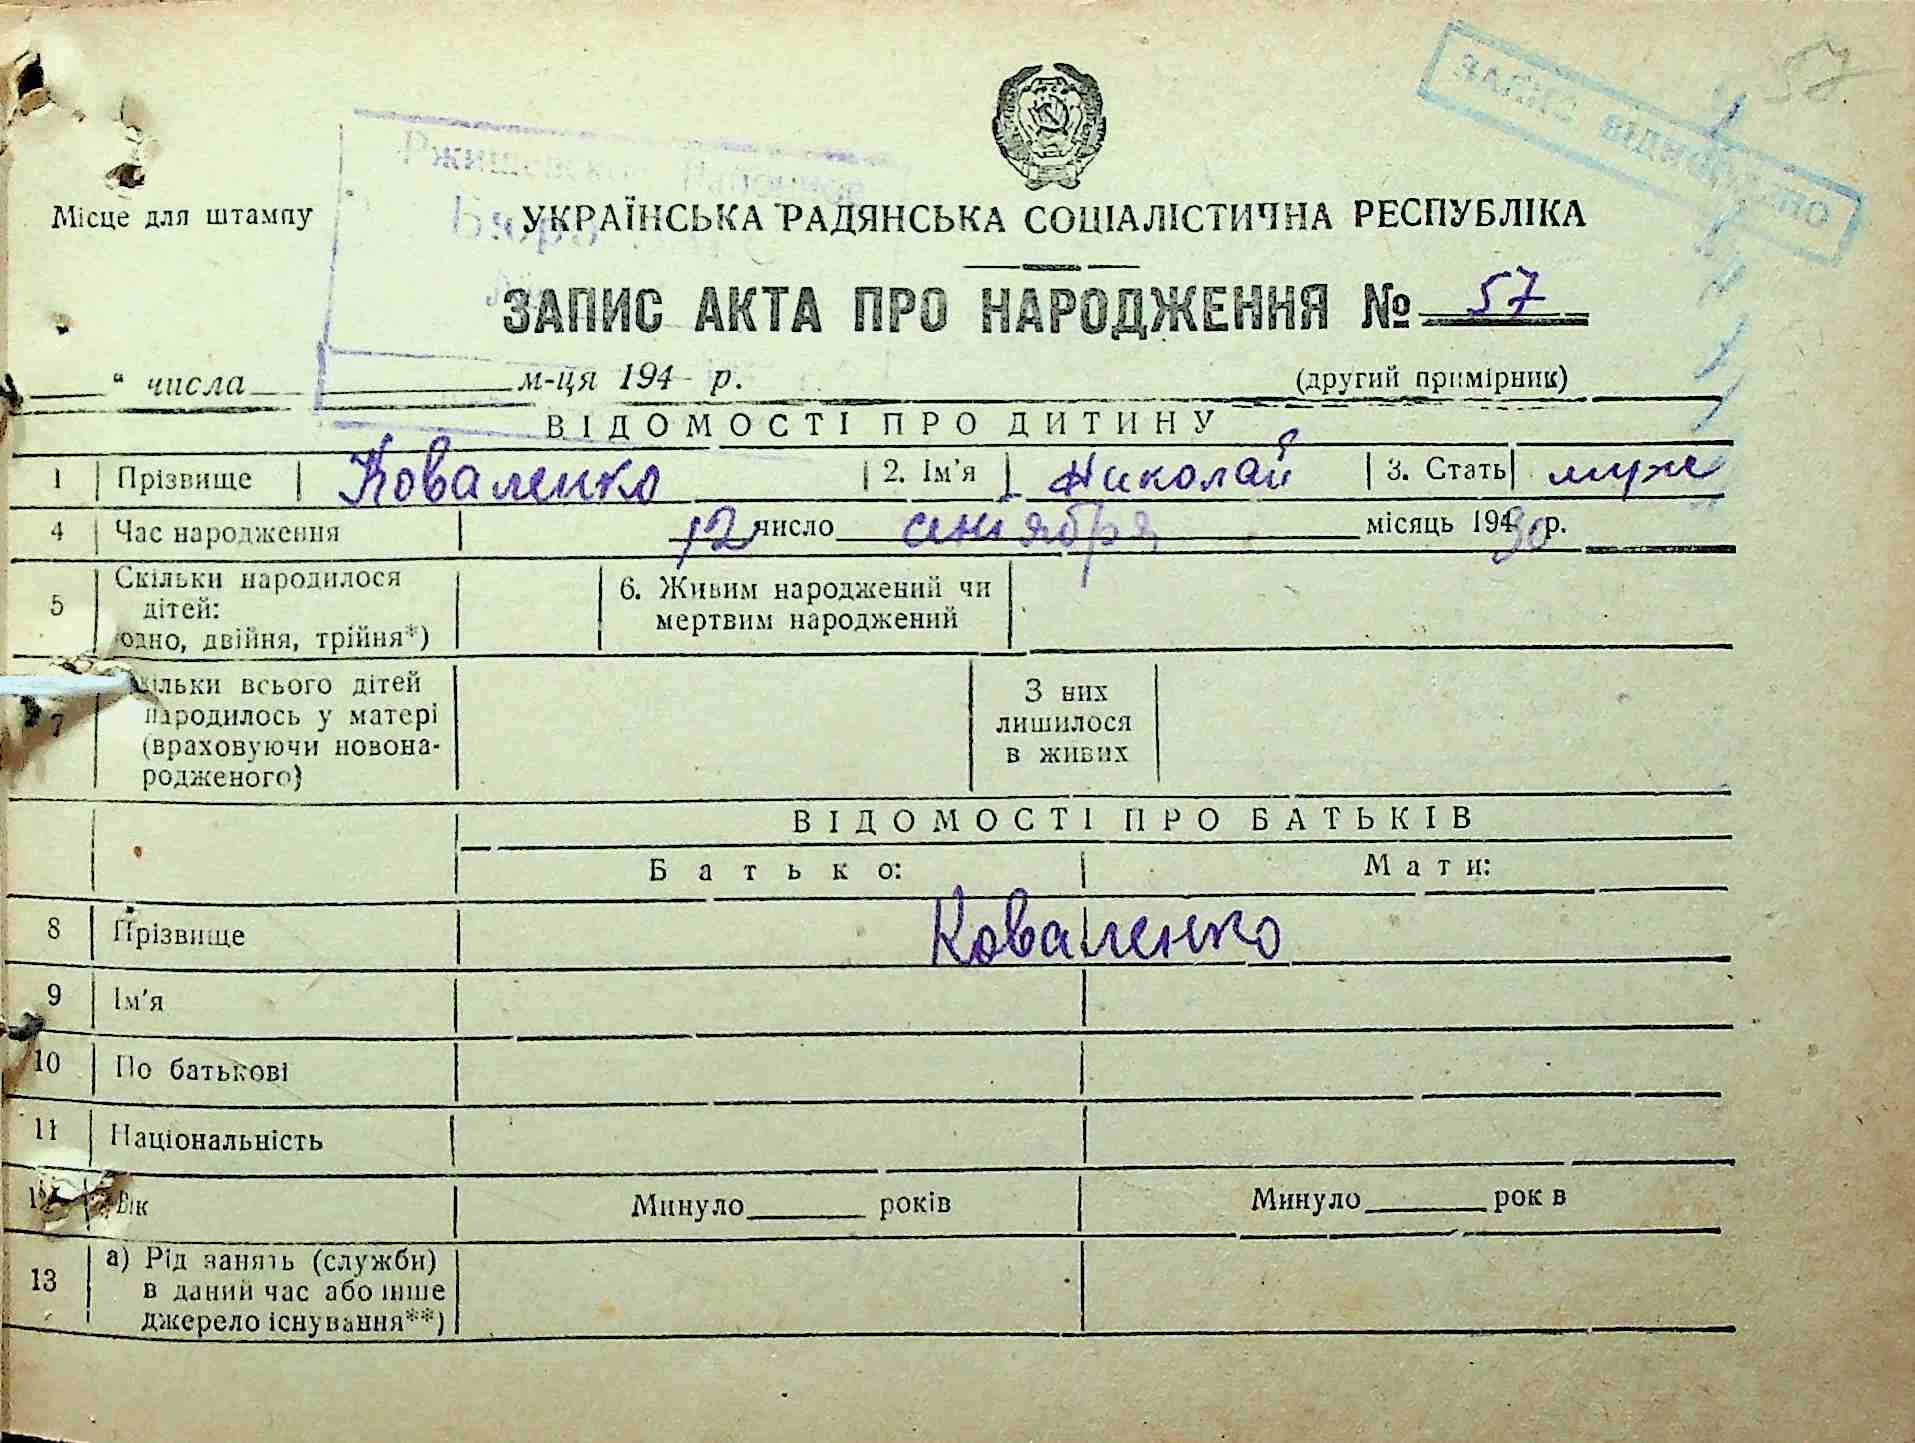 57
Ржищевск Районное
Бюро
Місце для штампу
УКРАЇНСЬКА РАДЯНСЬКА СОЦІАЛІСТИЧНА РЕСПУБЛІКА
ЗАПИС АКТА ПРО НАРОДЖЕННЯ № 57
“ числа м-ця 194 р. (другий примірник)
ВІДОМОСТІ ПРО ДИТИНУ
1 Прізвище Коваленко 2. Ім'я Николай 3. Стать муж
4 Час народження 12 число сентября місяць 1930 р.
5 Скільки народилося дітей: одно, двійня, трійня*) 6. Живим народжений чи мертвим народжений
7 Скільки всього дітей народилось у матері (враховуючи новонародженого) З них лишилося в живих
ВІДОМОСТІ ПРО БАТЬКІВ
Батько: Мати:
8 Прізвище Коваленко
9 Ім'я
10 По батькові
11 Національність
12 Вік Минуло років Минуло років
13 а) Рід занять (служби) в даний час або інше джерело існування**)